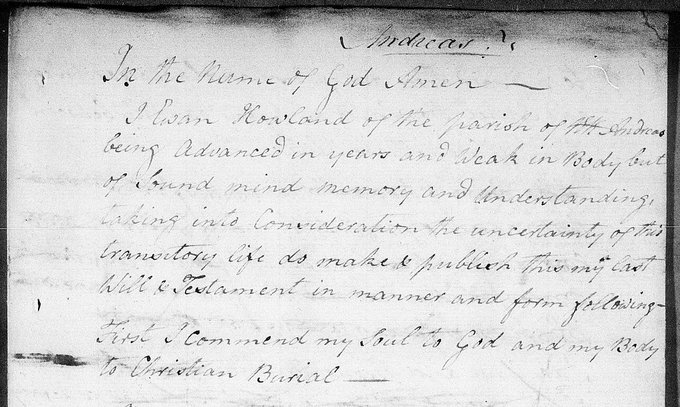 Andreas.
In the Name of God Amen —
I Ewan Howland of the parish of KK Andreas
being Advanced in years and Weak in Body but
of Sound mind memory and Understanding,
taking into Consideration the uncertainty of this
transitory life do make & publish this my last
Will & Testament in manner and form following—
First I commend my Soul to God and my Body
to Christian Burial —